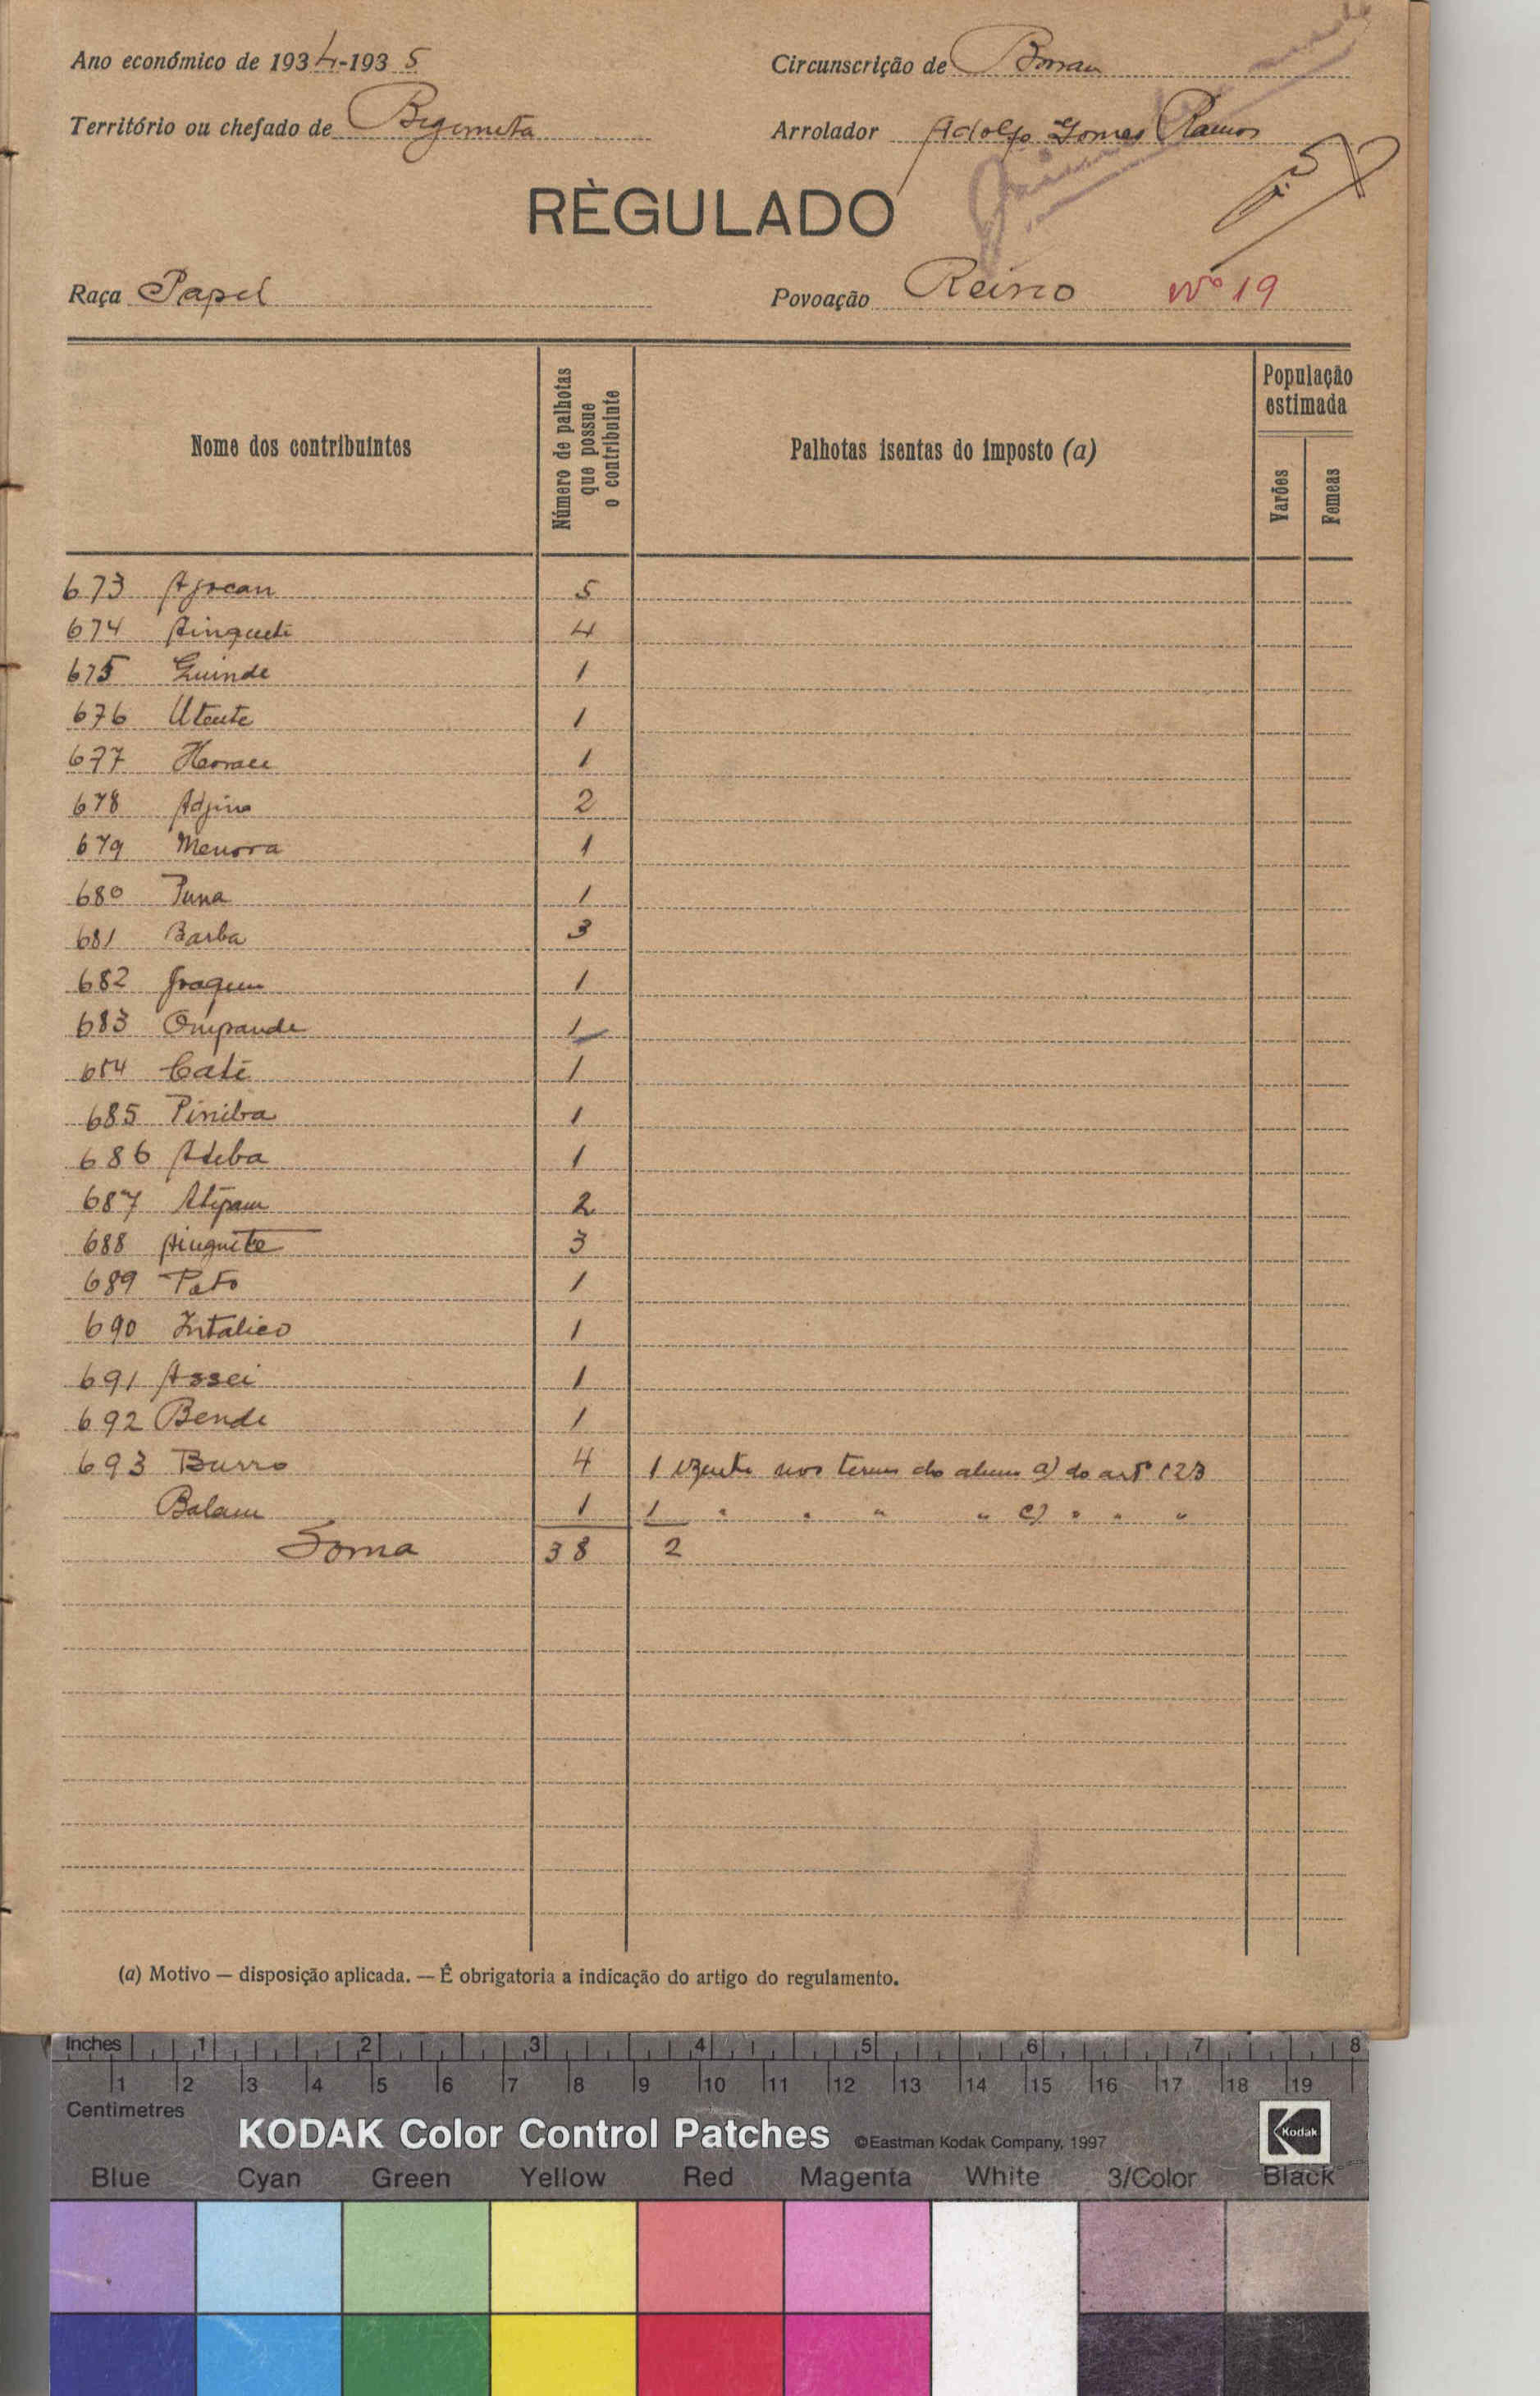 Ano económico de 1934-1935
Circunscrição de
Território ou chefado de Bigimita
Arrolador Adolfo Gomes Ramos
RÈGULADO
Raça Papel
Povoação Reino Nº 19
Nome dos contribuintes
Número de palhotas que possue o contribuinte
Palhotas isentas do imposto (a)
População estimada
Varões
Femeas
673 5
674 4
675 Guinde 1
676 1
677 1
678 Adjino 2
679 Menora 1
680 1
681 Barba 3
682 Joaquim 1
683 Ompande 1
684 Calé 1
685 Piniba 1
686 1
687 2
688 3
689 Pato 1
690 Intalico 1
691 Assei 1
692 Bende 1
693 Burro 4 1 nos do a) do artº 123
1 1 " " " " c) " " "
Soma 38 2
(a) Motivo — disposição aplicada. — É obrigatoria a indicação do artigo do regulamento.
Inches 1 2 3 4 5 6 7 8
1 2 3 4 5 6 7 8 9 10 11 12 13 14 15 16 17 18 19
Centimetres
KODAK Color Control Patches ©Eastman Kodak Company, 1997 Kodak
Blue Cyan Green Yellow Red Magenta White 3/Color Black